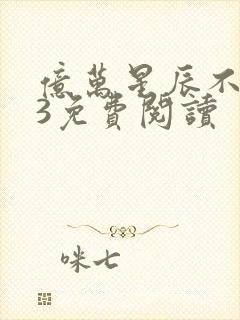 億萬星辰不
3免費閱讀
咪七